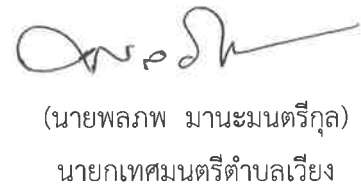 (นายพลภพ มานะมนตรีกุล)
นายกเทศมนตรีตำบลเวียง